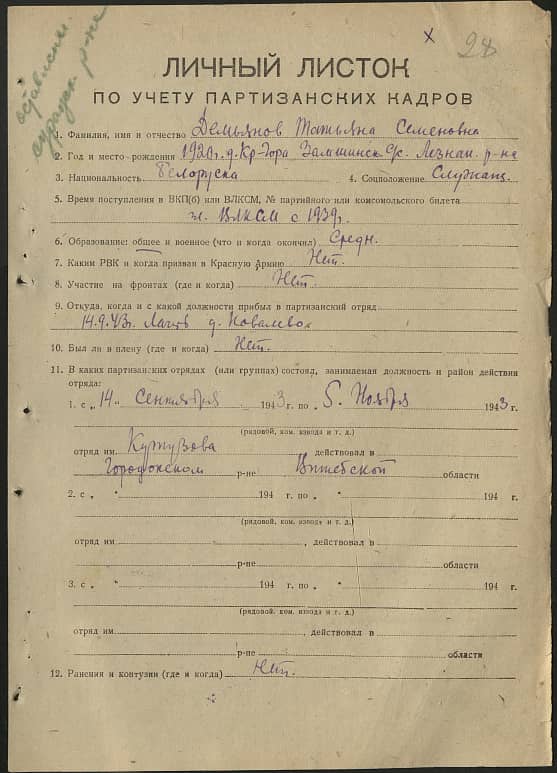 х 28
ЛИЧНЫЙ ЛИСТОК
ПО УЧЕТУ ПАРТИЗАНСКИХ КАДРОВ
1. Фамилия, имя и отчество Демьянов Татьяна Семеновна
2. Год и место рождения 1920 г. д. Кр-Гора р-на
3. Национальность Белоруска 4. Соцположение Служащ.
5. Время поступления в ВКП(б) или ВЛКСМ, № партийного или комсомольского билета
чл. ВЛКСМ с 1939 г.
6. Образование: общее и военное (что и когда окончил) Средн.
7. Каким РВК и когда призван в Красную Армию Нет.
8. Участие на фронтах (где и когда) Нет.
9. Откуда, когда и с какой должности прибыл в партизанский отряд
14.9.43г. д.
10. Был ли в плену (где и когда) Нет.
11. В каких партизанских отрядах (или группах) состоял, занимаемая должность и район действия
отряда:
1. с „ 14 " Сентября 1943 г. по „ 5. Ноября 1943 г.
(рядовой, ком. взвода и т. д.)
отряд им. действовал в
Городокском р-не Витебской области
2. с „ " 194 г. по „ " 194 г.
(рядовой, ком. взвода и т. д.)
отряд им. , действовал в
р-не области
3. с „ " 194 г. по „ " 194 г.
(рядовой, ком. взвода и т. д.)
отряд им. , действовал в
р-не области
12. Ранения и контузии (где и когда) Нет.